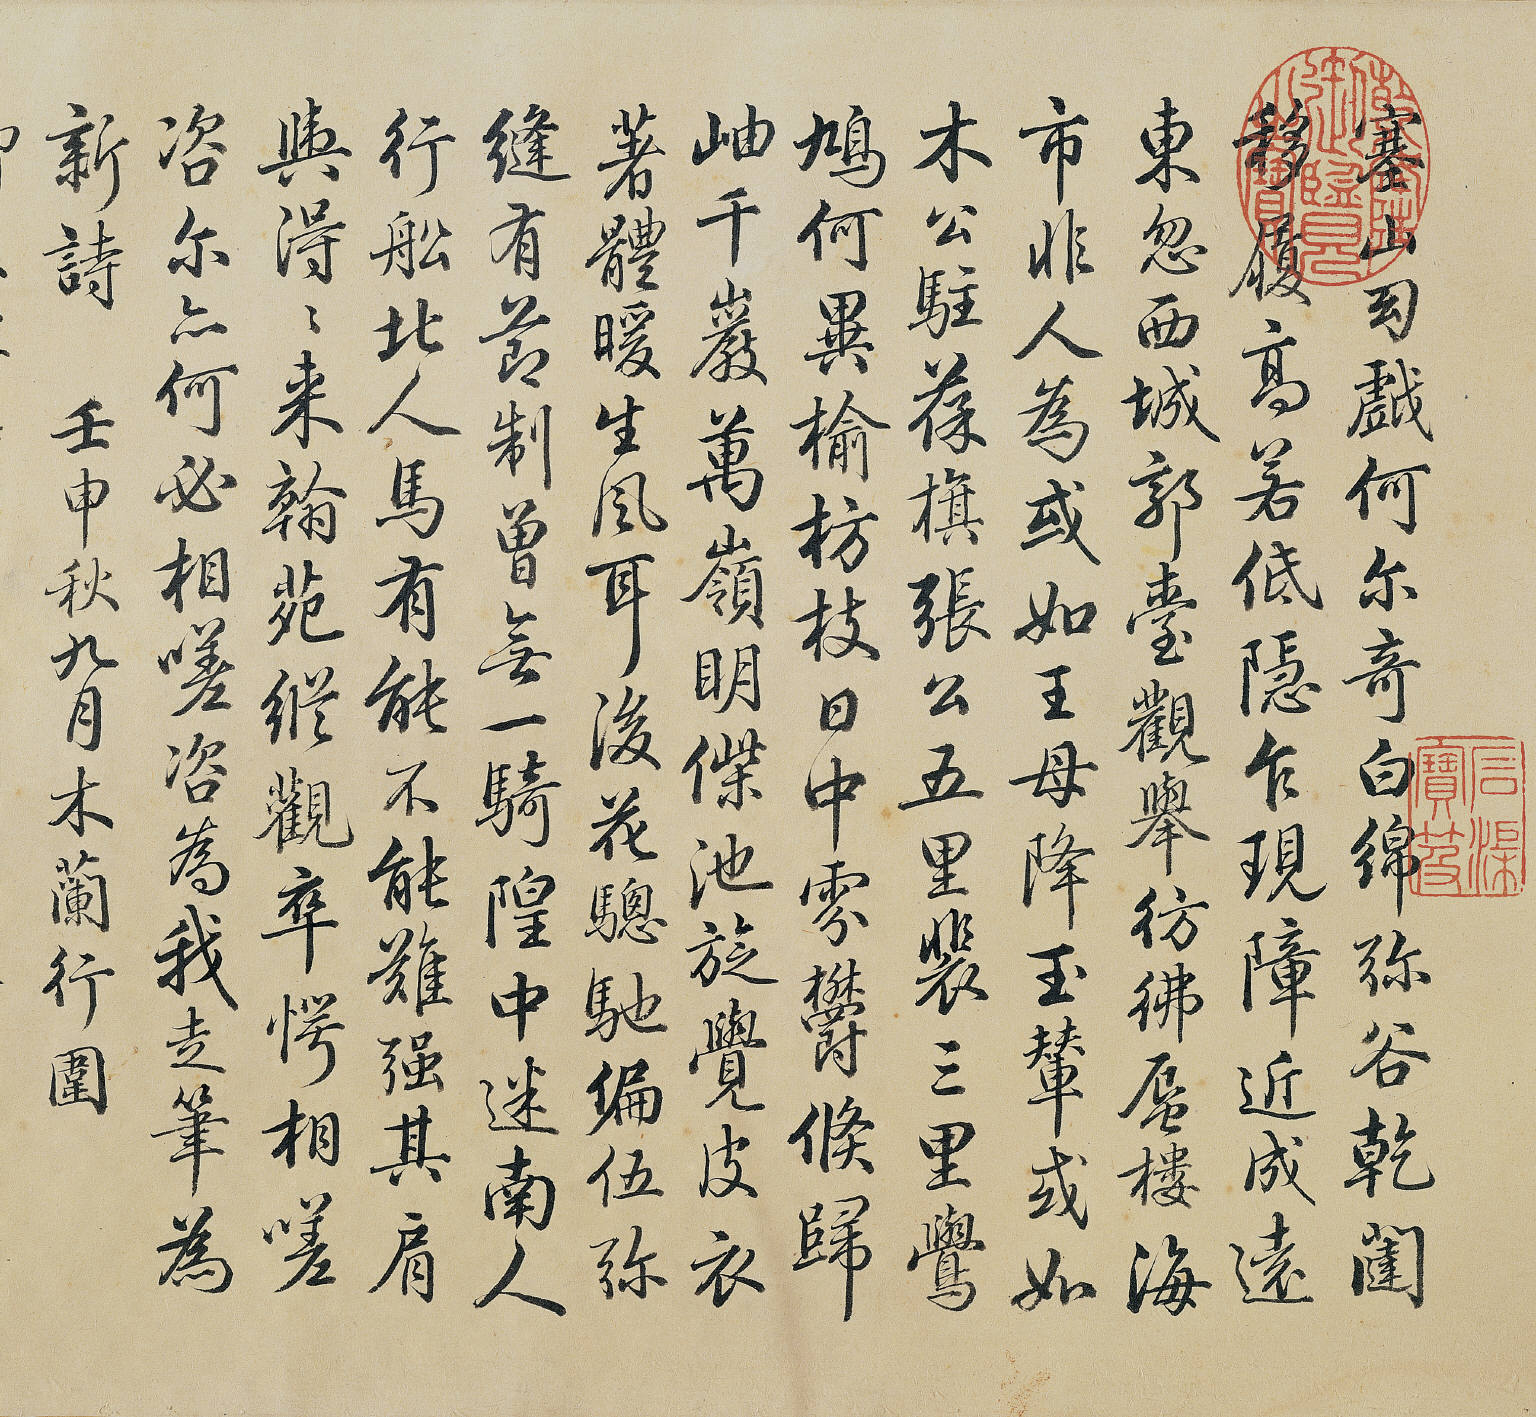 塞山雲戲何尔奇白綿弥谷乾闥
移履高若低隱乍現障近成遠
東忽西城郭臺觀舉彷彿蜃樓海
市非人為或如王母降玉輦或如
木公駐葆旗張公五里裴三里鷽
鳩何異榆枋枝日中雰欝倐歸
岫千巖萬嶺明傑池旋覺皮衣
著體暖生風耳後花驄馳偏伍弥
縫有節制曾無一騎隍中迷南人
行船北人馬有能不能難强其肩
輿得得来翰苑縱觀率愕相嗟
咨尔亦何必相嗟咨為我走筆為
新詩 壬申秋九月木蘭行圍